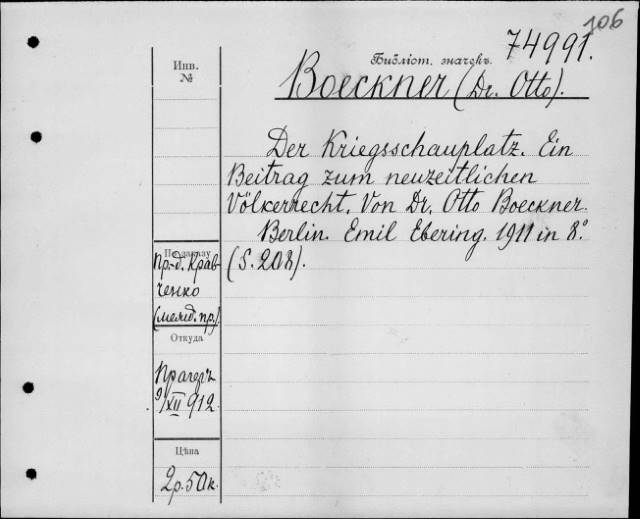 106
74991.
Инв.
№
Библіот. значекъ
Boeckner (Dr. Otto).
Der Kriegsschauplatz. Ein
Beitrag zum neuzeitlichen
Völkerrecht. Von Dr. Otto Boeckner.
Berlin. Emil Ebering. 1911 in 8.°
(S. 208).
По заказу
Пр.-д. Крав-
ченко
(межд. пр.)
Откуда
Прагеръ
9/XII 912.
Цѣна
2р.50к.